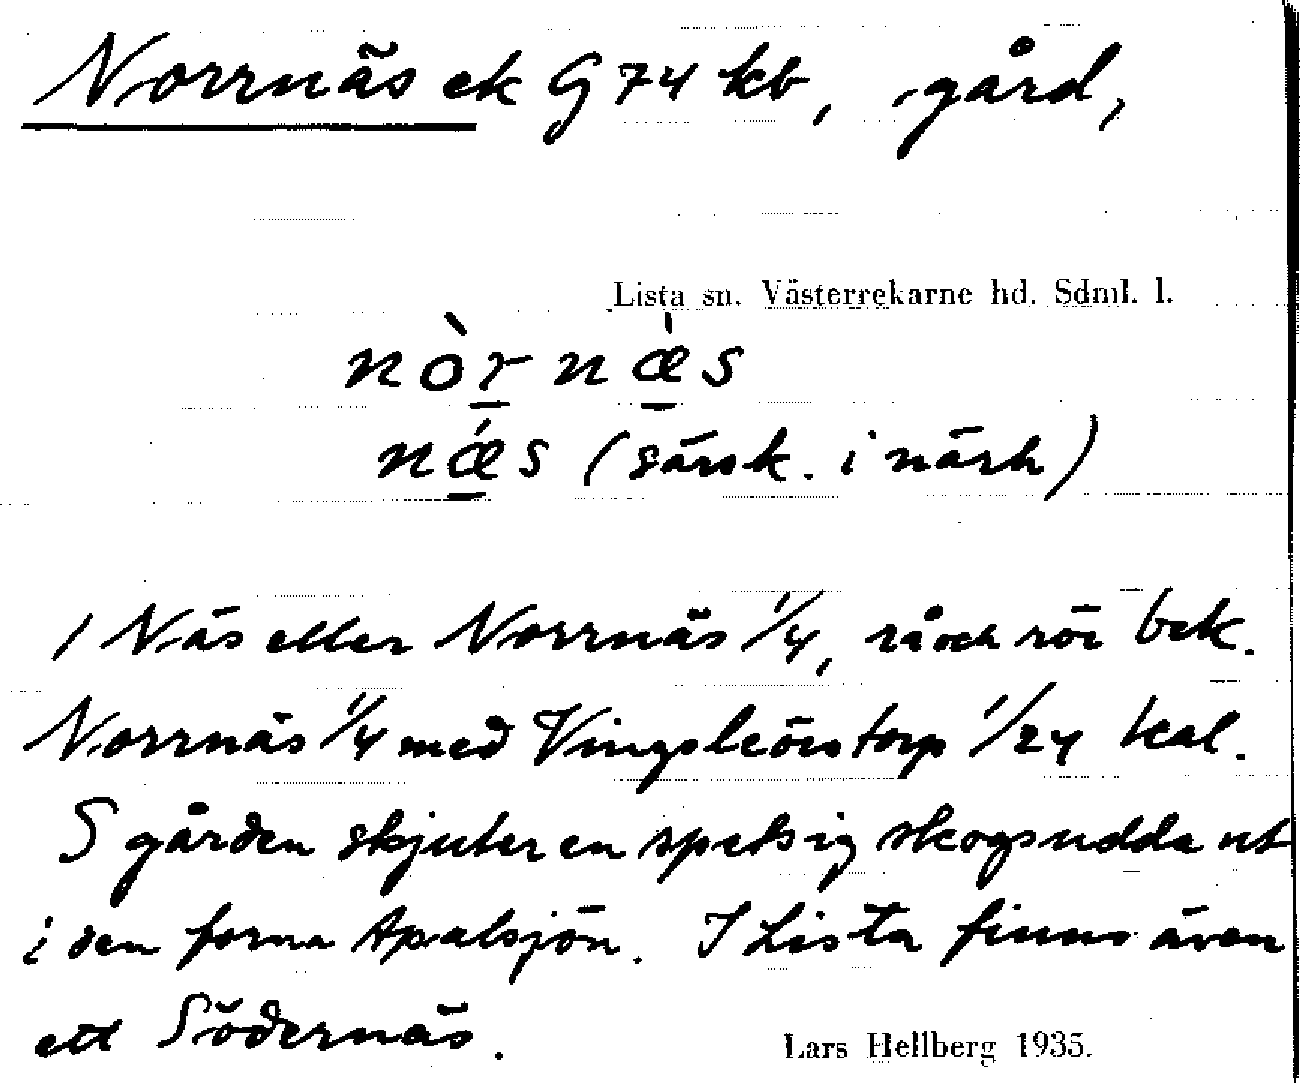 Norrnäs ek G 74 kb, gård,
Lista sn. Västerrekarne hd. Sdml. l.
nòr næ̀s
nǽs (särsk. i närh)
1 Näs eller Norrnäs 1/4, rå och rör bek.
Norrnäs 1/4 med Vingsleörstorp 1/24 kal.
S gården skjuter en spetsig skogsudda ut
i den forna Apalsjön. I Lista finns även
ett Södernäs.
Lars Hellberg 1935.